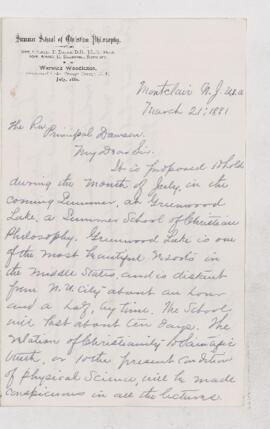 Summer School of Christian Philosophy.
Warwick Woodlands,
July, 1881.
Montclair N.J. USA
March 21st 1881
The Rev Principal Dawson.
My Dear Sir.
It is proposed to hold
during the month of July, in the
coming Summer, at Greenwood
Lake, a Summer School of Christian
Philosophy. Greenwood Lake is one
of the most beautiful resorts in
the Middle States, and is distant
from N.Y. City about an hour
and a half, by time. The School
will last about ten days. The
relation of Christianity to
truth, or to the present condition
of physical Science, will be made
conspicuous in all the lectures.